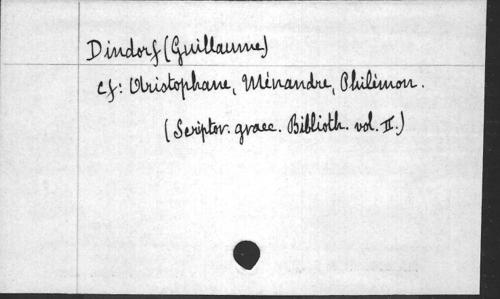 Dindorf (Guillaume)
cf: Aristophane, Ménandre, Philémon.
(Scriptor. graec. Biblioth. vol. II.)